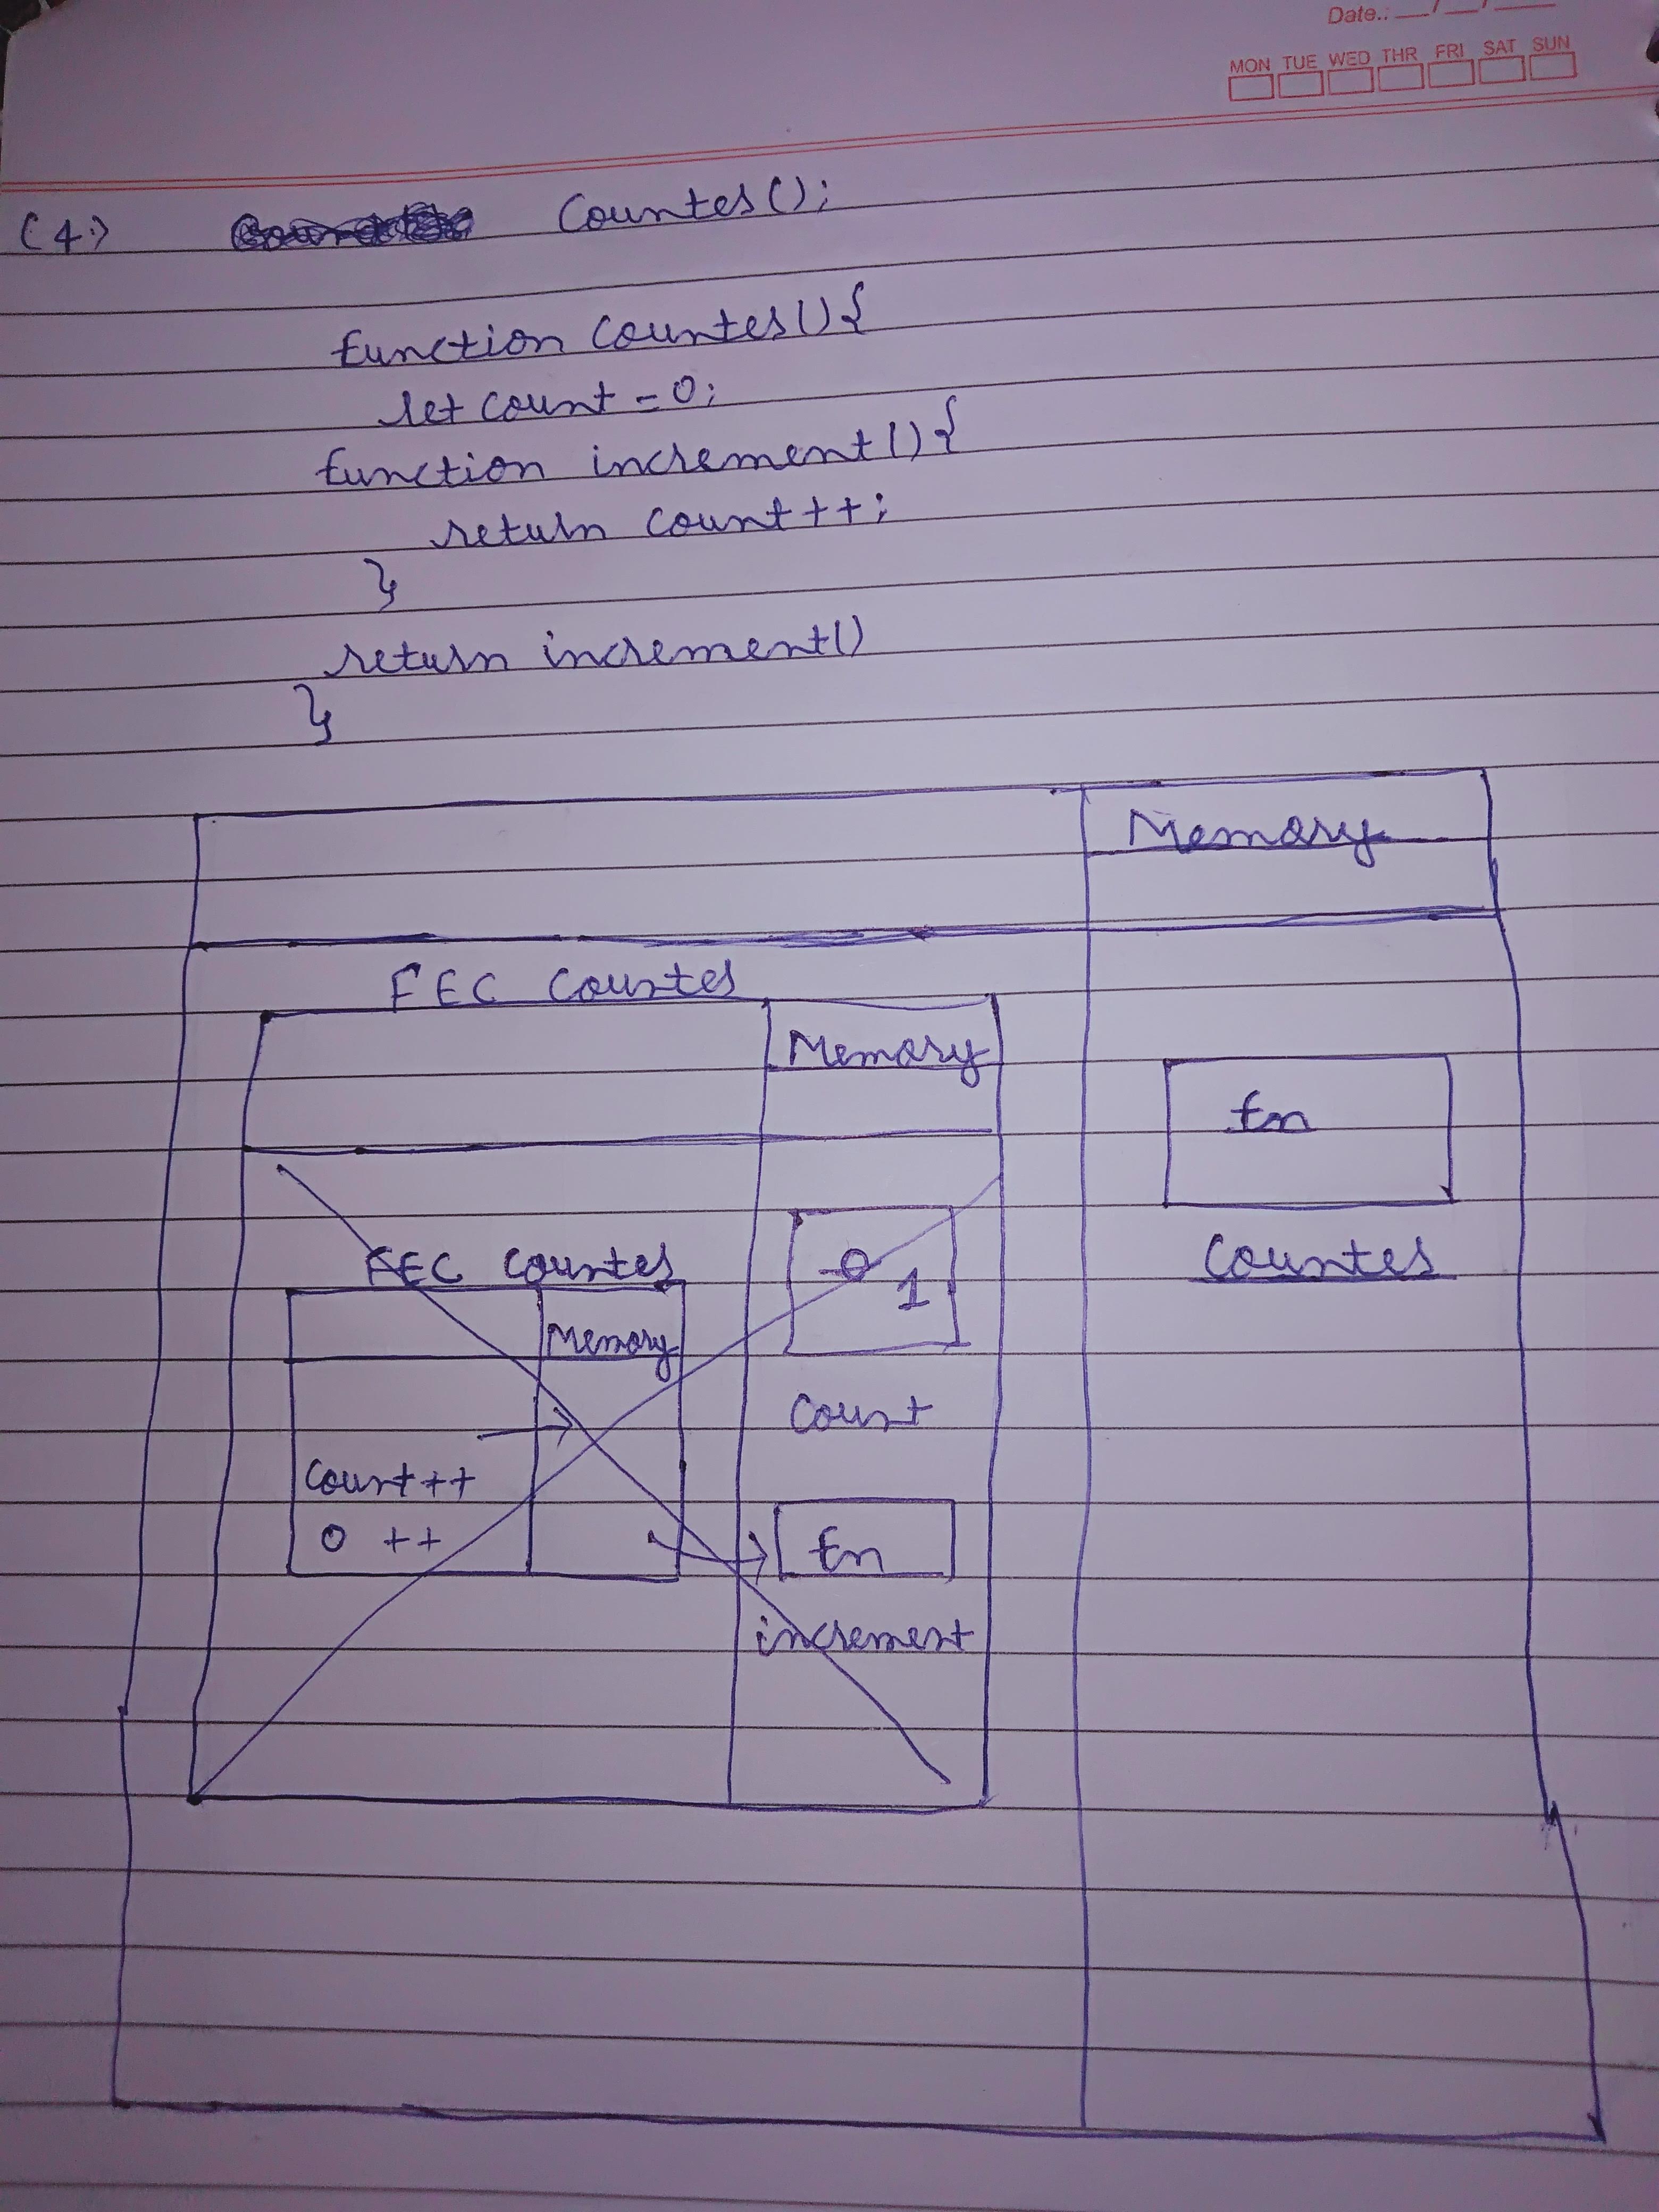 Date.: __/__/__
MON TUE WED THR FRI SAT SUN
(4.) Counter();
function counter(){
let count = 0;
function increment(){
return count++;
}
return increment()
}
Memory
FEC Counter
Memory
fn
Counter
FEC Counter
0 1
Memory
Count
Count++
0 ++
fn
increment